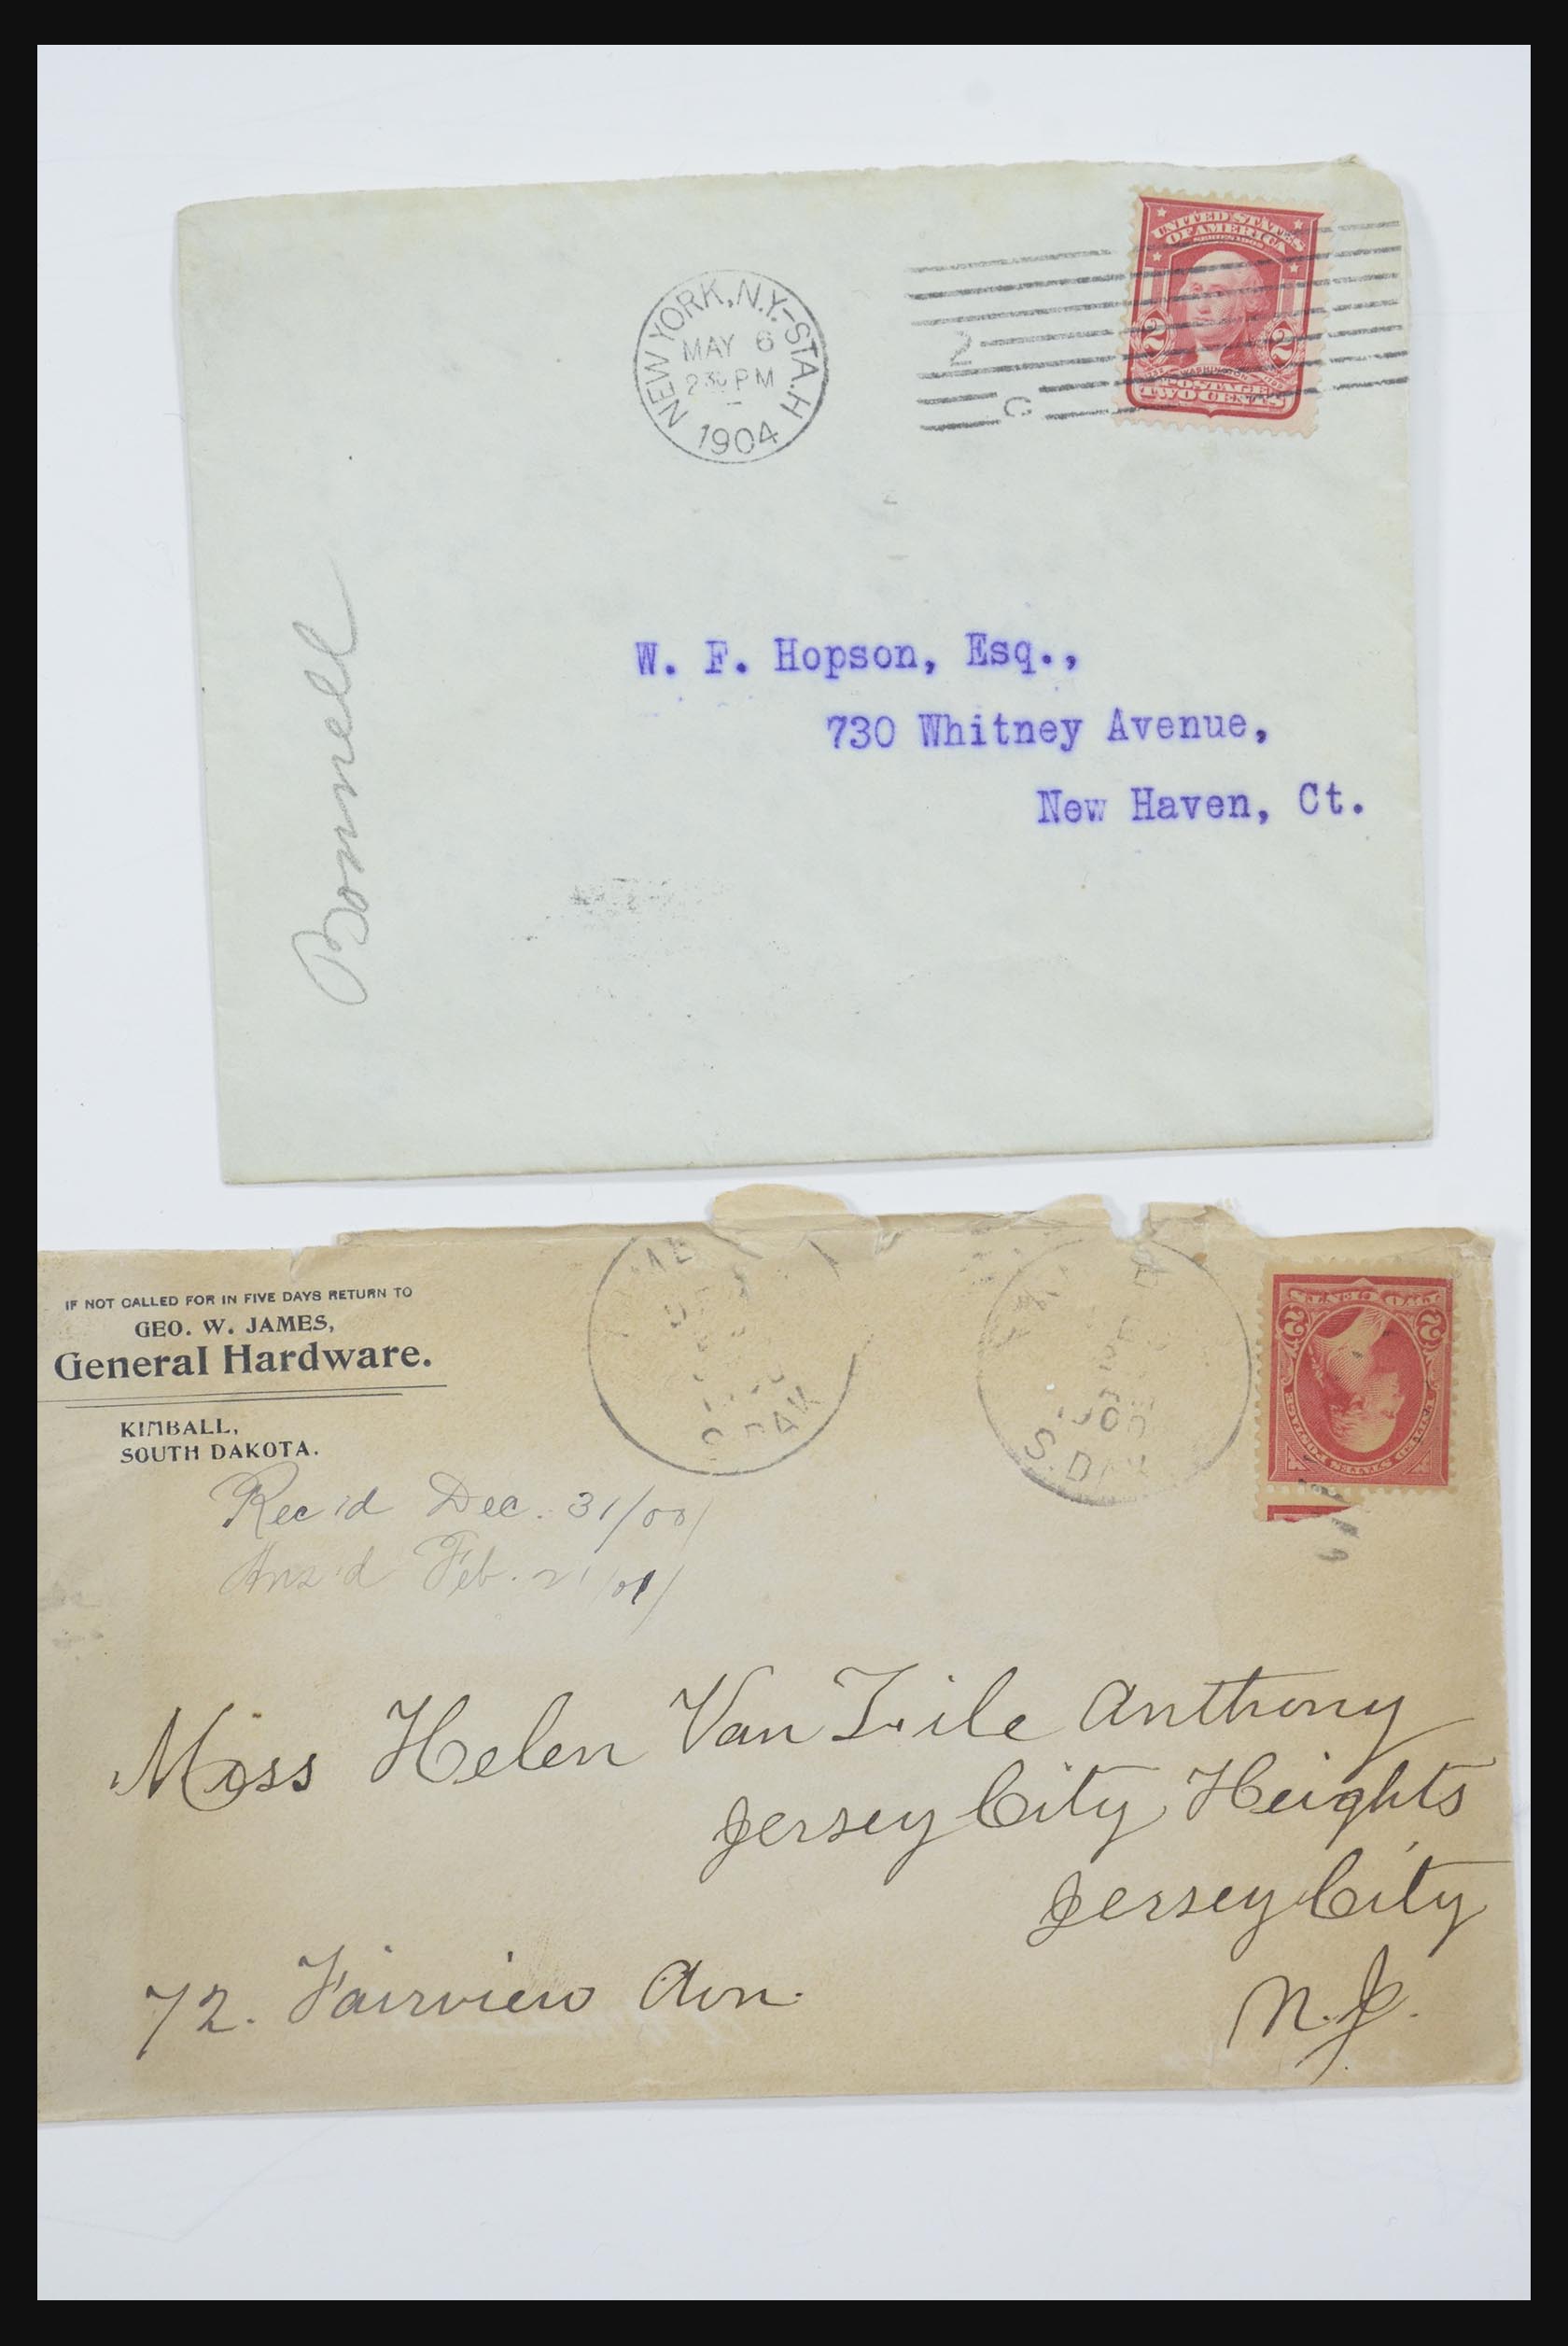 NEW YORK, N.Y.-STA. H
MAY 6
230 PM
1904
2
C
UNITED STATES
OF AMERICA
SERIES 1902
2 2
WASHINGTON
POSTAGE
TWO CENTS
W. F. Hopson, Esq.,
730 Whitney Avenue,
New Haven, Ct.
Bonnell
IF NOT CALLED FOR IN FIVE DAYS RETURN TO
GEO. W. JAMES,
General Hardware.
KIMBALL,
SOUTH DAKOTA.
S. DAK
S. DAK
UNITED STATES POSTAGE
2 2
TWO CENTS
Rec'd Dec. 31/00/
Ans'd Feb. 21/01/
Miss Helen Van Zile Anthony
Jersey City Heights
Jersey City
N.J.
72. Fairview Avn.